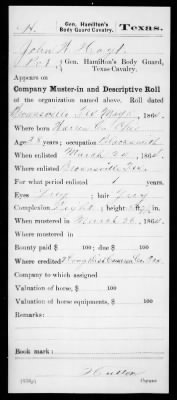 H. Gen. Hamilton's Body Guard Cavalry. Texas.
John H.
Pvt, Gen. Hamilton's Body Guard Cavalry, Texas Cavalry.
Appears on
Company Muster-in and Descriptive Roll
of the organization named above. Roll dated
Brownsville Tex, 186
Where born Warren Co.
Age 38 years; occupation Blacksmith
When enlisted March 186
Where enlisted Brownsville Tex.
For what period enlisted 1 years.
Eyes Grey; hair Grey
Complexion Light; height ft. in.
When mustered in March 26, 186
Where mustered in
Bounty paid $ 100; due $ 100
Where credited Cameron Co. Tex
Company to which assigned
Valuation of horse, $ 100
Valuation of horse equipments, $ 100
Remarks:
Book mark:
Copyist